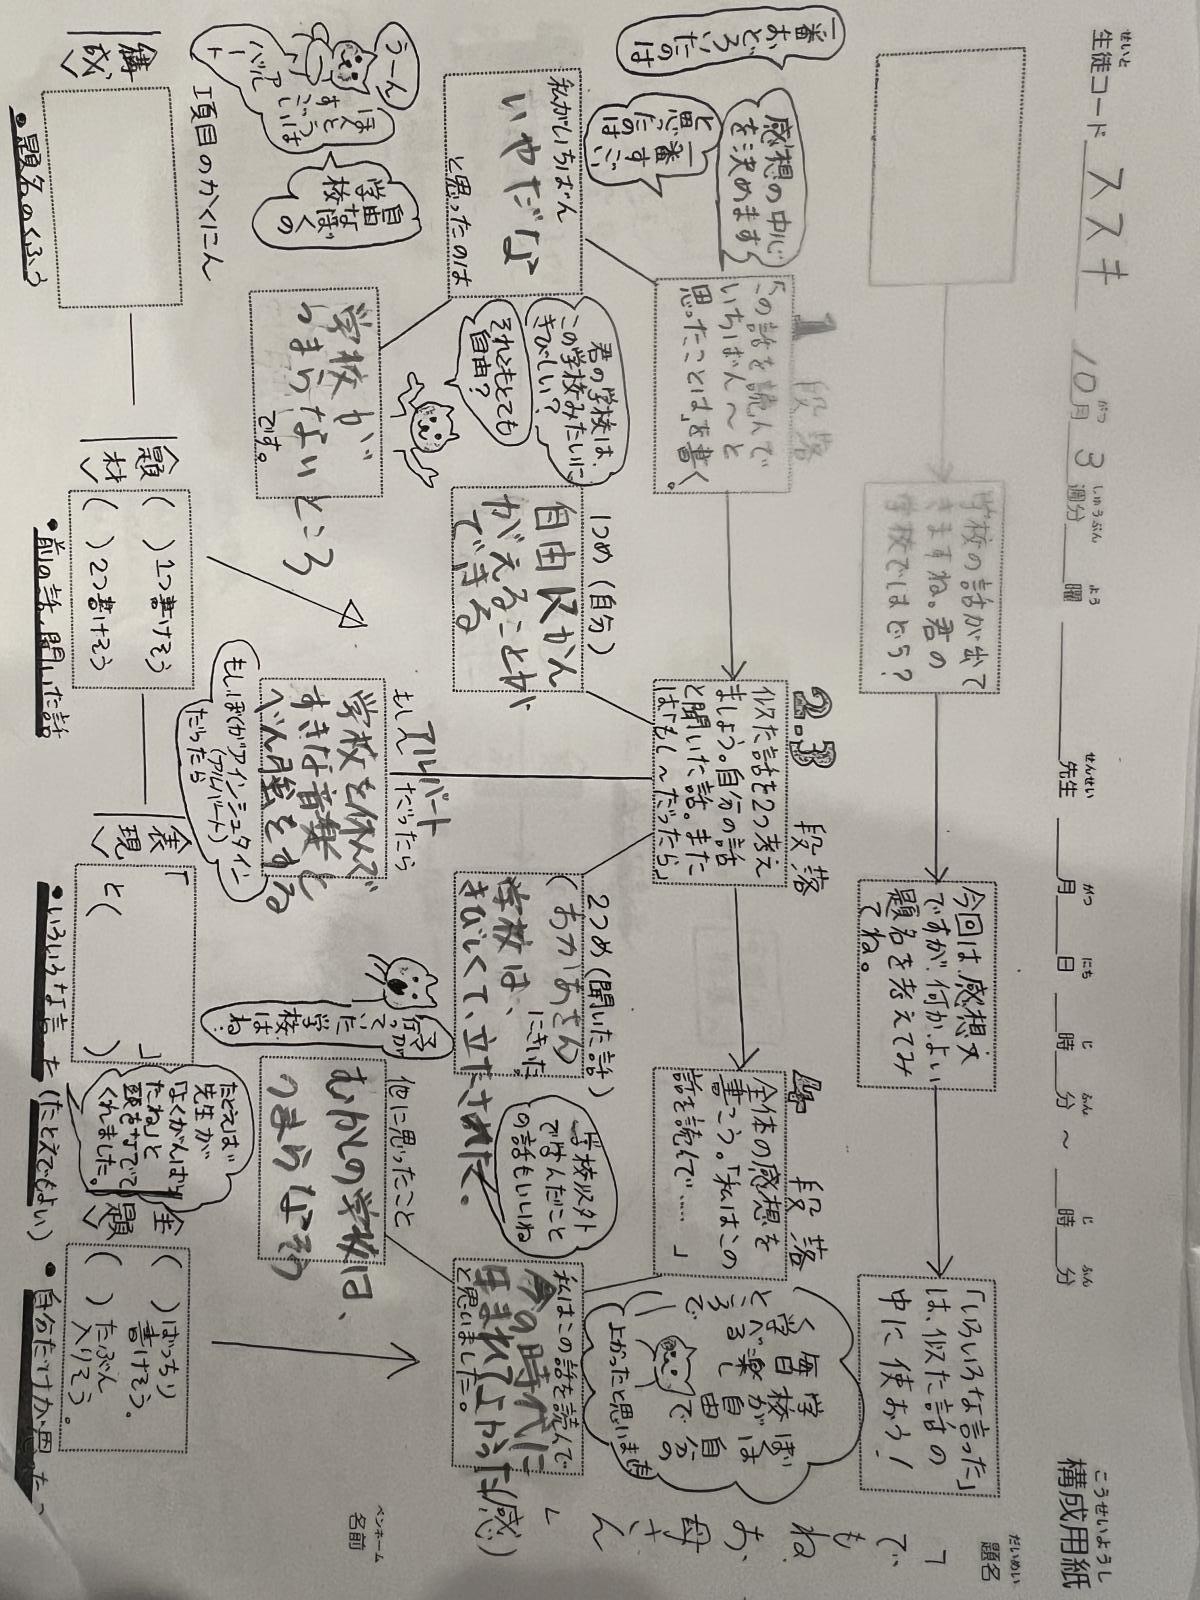 こうせいようし
構成用紙
せいと
生徒コード ススキ 10月 3週分 曜 先生 月 日 時 分 ～ 時 分
がつ しゅうぶん よう せんせい がつ にち じ ふん じ ふん
だいめい
題名
「でもね、お母さん」
ペンネーム
名前
学校の話が出て
きますね。君の
学校ではどう?
今回は感想文
ですが、何かよい
題名を考えてみ
てね。
「いろいろな言った」
は、似た話の
中に使おう!
1段落
「この話を読んで
いちばん～と
思ったことは」を書く。
2.3段落
似た話を2つ考え
ましょう。自分の話
と聞いた話。また
は「もし～だったら」
4段落
全体の感想を
書こう。「私はこの
話を読んで……」
感想の中心
を決めます
一番すごい
と思ったのは
一番
おどろいたのは
ぼくは自分の
学校が自由で
毎日楽し
く学べる
ところで
よかったと思います
私がいちばん
いやだな
と思ったのは
学校が
つまらないところ
です。
君の学校は、
この学校みたいに
きびしい?
それともとても
自由?
1つめ(自分)
自由にかん
がえることが
できる
2つめ(聞いた話)
(おかあさん
にきいた。
学校は、
きびしくて、立たされた。
学校以外
で学んだこと
の話もいいね
私はこの話を読んで
今の時代に
生まれてよかった(感)
と思いました。
もしアルバートだったら
学校を休んで
すきな音楽と
べん強をする
もし、ぼくがアインシュタイン
(アルバート)
だったら
他に思ったこと
むかしの学校は、
つまらなそう
行っていた学校はね…
うーん
ほんとうは
すごいぞ
アルバート
自由な学校
1項目のかくにん
<構成>
•題名のくふう
<題材>
( )1つ書けそう
( )2つ書けそう
•前の話、聞いた話
<表現>
「 」
と( )
•いろいろな言った(たとえでもよい)
たとえば
先生が
「よくがんばっ
たね」と
頭をなでて
くれました。
<主題>
( )ばっちり
書けそう。
( )たぶん
入りそう。
•自分だけが思った